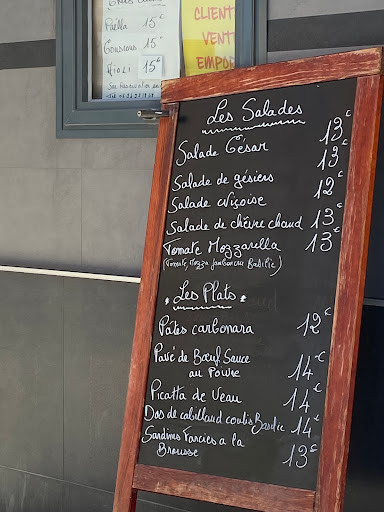 Paella 15€
Couscous 15€
Aïoli 15€
CLIENT
VENT
EMPOR
Les Salades
Salade César 13€
Salade de gésiers 13€
Salade niçoise 12€
Salade de chèvre chaud 13€
Tomate Mozzarella 13€
(Tomate, Mozza jambon cru Basilic)
Les Plats
Pâtes carbonara 12€
Pavé de Bœuf Sauce
au Poivre 14€
Picatta de Veau 14€
Dos de cabillaud coulis Basilic 14€
Sardines Farcies a la
Brousse 13€